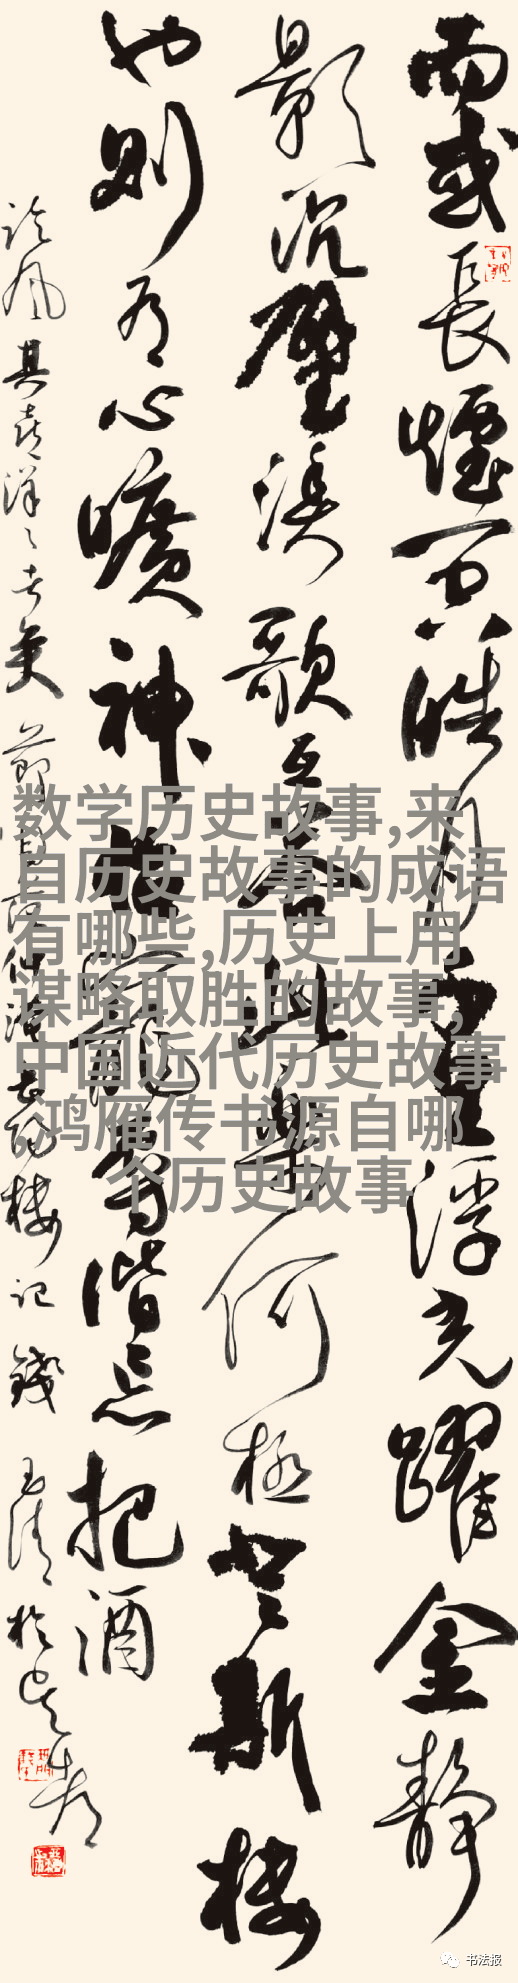 而或長煙一空皓月千里浮光躍金靜
影沉璧漁歌互答此樂何極登斯樓
也則有心曠神怡寵辱偕忘把酒
臨風其喜洋洋者矣 節錄范仲淹岳陽樓記 錢玉清於
数学历史故事,来
自历史故事的成语
有哪些,历史上用
谋略取胜的故事,
中国近代历史故事
,鸿雁传书源自哪
个历史故事
书法报